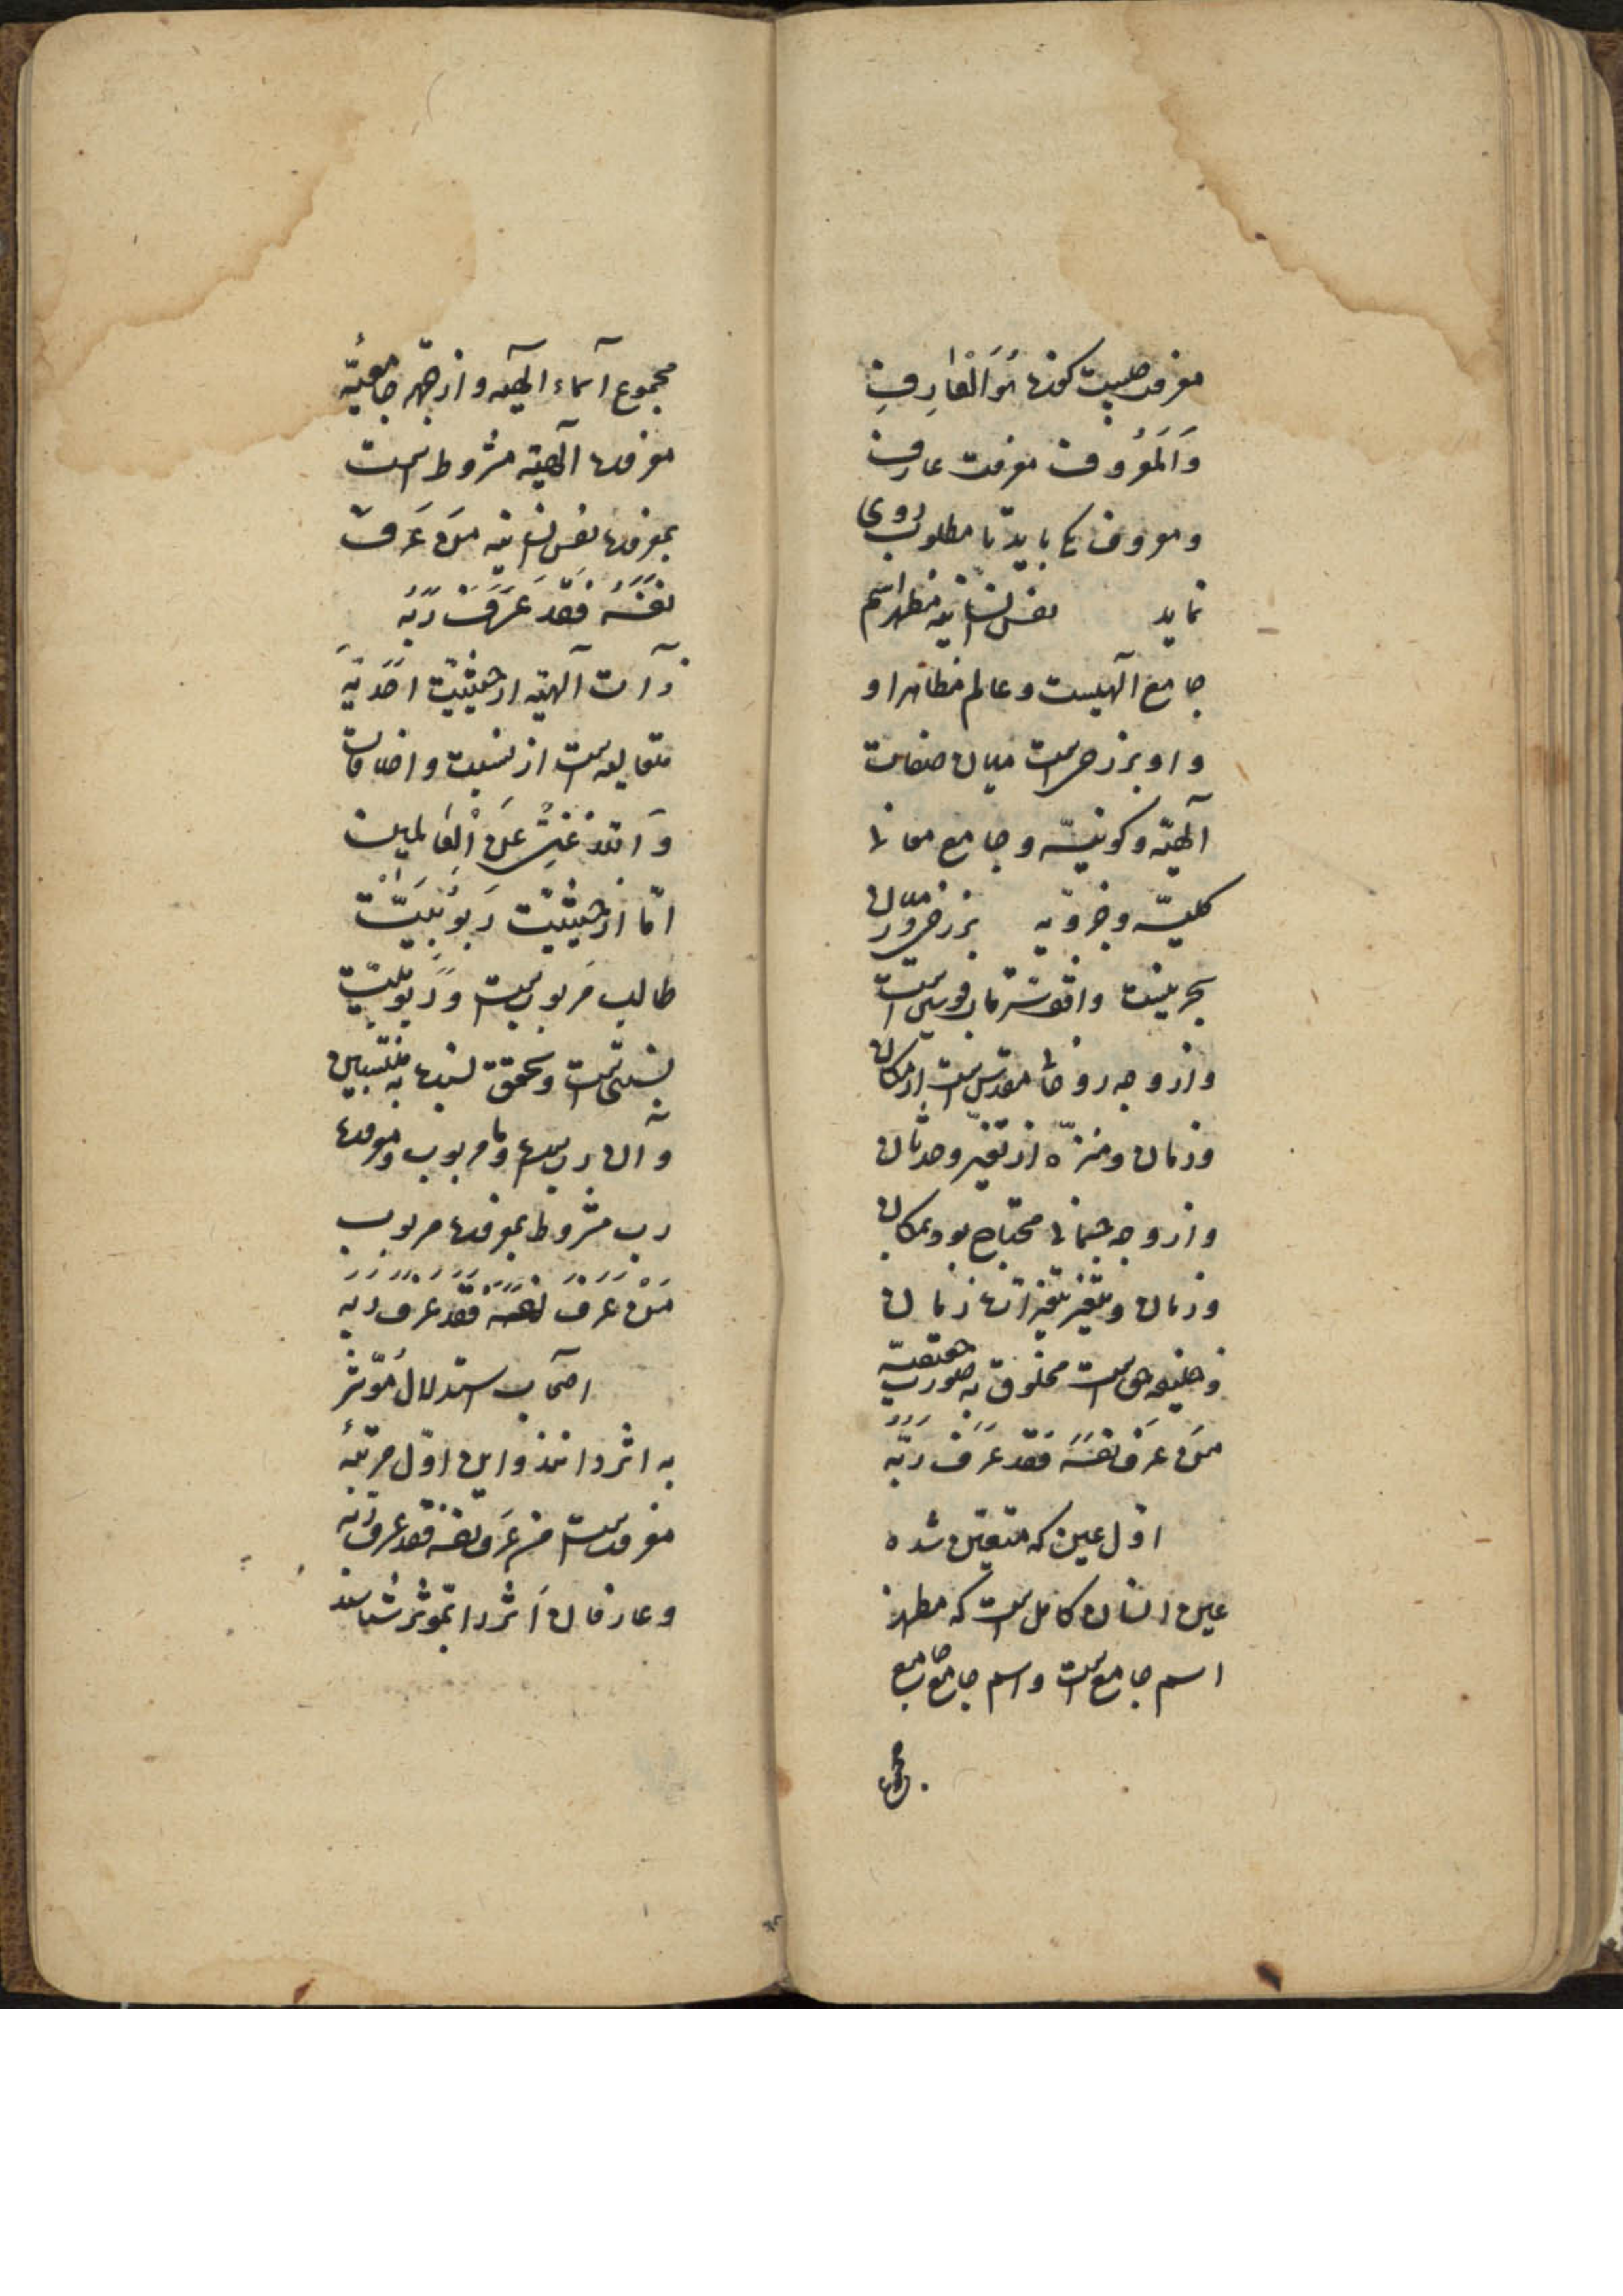 معرفت چیست گفت هُوَ الْعٰارِفِ
وَالَمعْرُوف معرفت عارف
و معروف یکی باید تا مطلوب روی
نماید نفس انسانیه مظهر اسم
جامع آلهیست و عالم مظاهر او
و او برزخ است میان صفات
آلهیّه و کونیّه و جامع معانی
کلیّه و جزویه برزخ در میان
بحرینست واقف سر قاب قوسین است
و از وجه روحانی مقدس است از مکان
و زمان و منزّه از تغیر و حدثان
و از وجه جسمانی محتاج بود بمکان
و زمان و متغیر بتغیرات زمان
و خلیفه حق است مخلوق به صورت حقیقیه
مَن عَرَفَ نفسَهُ فَقَد عَرَفَ رَبّه
اوّل عین که متعیّن شده
عین انسان کامل است که مظهر
اسم جامع است و اسم جامع جامع
مجموع آسماء آلهیه و از جهة جامعیّه
معرفت آلهیّه مشروط است
بمعرفت نفس انسانیه مَن عَرَفَ
نَفسَهُ فَقَد عَرَفَ رَبّه
ذآت آلهیّه از حیثیّت احَدیّه
متعالیه است از نسبت و اضافات
وَ اللهُ غَنِیٌّ عَنِ الْعٰالَمین
امّا از حیثیّت رَبُوبیَّت
طالب مربوبست و ربوبیّت
نسبتی است و تحقق نسبت به منتسبین
و آن رب است و مربوب و معرفت
رب مشروط بمعرفت مربوب
مَنْ عَرَفَ نَفسَهُ فَقَد عَرَفَ رَبَّه
اصحآب استدلال مُؤثّر
به اثر دانند و این اوّل مرتبهٔ
معرفت است من عَرَف نفسه فقد عرف ربّه
و عارفان اَثر را بمُؤثر شناسند